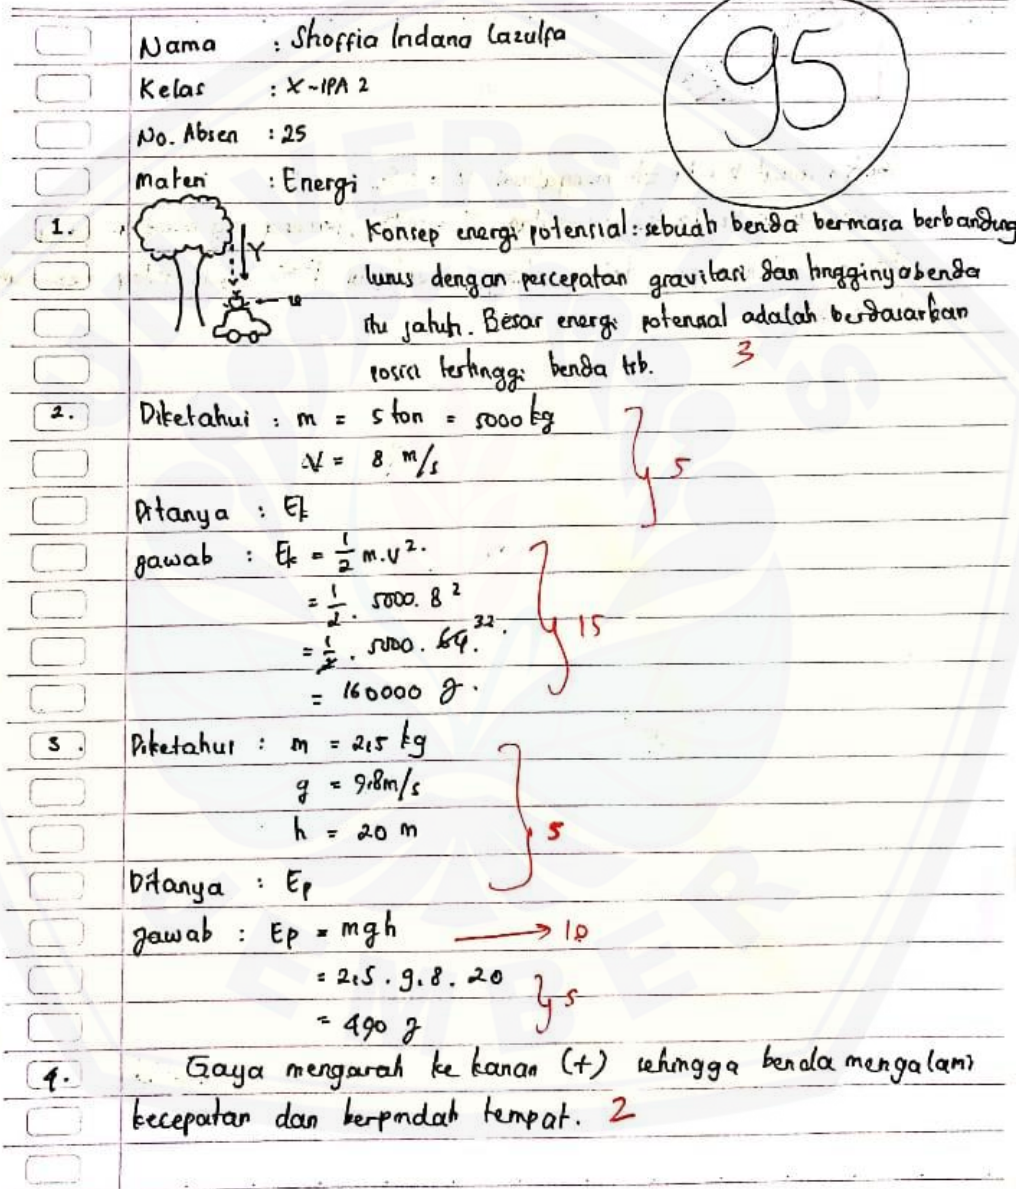 95
Nama : Shoffia Indana Lazulfa
Kelas : X-IPA 2
No. Absen : 25
Materi : Energi
1. Konsep energi potensial: sebuah benda bermasa berbanding
Y
lurus dengan percepatan gravitasi dan tingginya benda
itu jatuh. Besar energi potensial adalah berdasarkan
posisi tertinggi benda trb. 3
2. Diketahui : m = 5 ton = 5000 kg
V = 8 m/s
5
Ditanya : Ek
Jawab : Ek = 1/2 m.v².
= 1/2 . 5000. 8²
= 1/2 . 5000. 64. 32.
15
= 160000 J.
3. Diketahui : m = 2,5 kg
g = 9,8 m/s
h = 20 m
5
Ditanya : Ep
Jawab : Ep = mgh → 10
= 2,5 . 9,8 . 20
5
= 490 J
4. Gaya mengarah ke kanan (+) sehingga benda mengalami
kecepatan dan berpindah tempat. 2